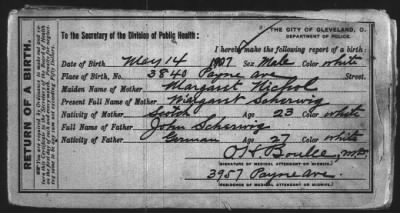 THE CITY OF CLEVELAND, O.
DEPARTMENT OF POLICE.
To the Secretary of the Division of Public Health:
I hereby make the following report of a birth:
Date of Birth May 14 1907 Sex Male Color White
Place of Birth, No. 3840 Payne ave Street.
Maiden Name of Mother Margaret Nichol
Present Full Name of Mother Margaret Scherwig
Nativity of Mother Scotch Age 23 Color White
Full Name of Father John Scherwig
Nativity of Father German Age 27 Color White
M.D.
SIGNATURE OF MEDICAL ATTENDANT OR MIDWIFE.
3957 Payne ave.
RESIDENCE OF MEDICAL ATTENDANT OR MIDWIFE.
RETURN OF A BIRTH.